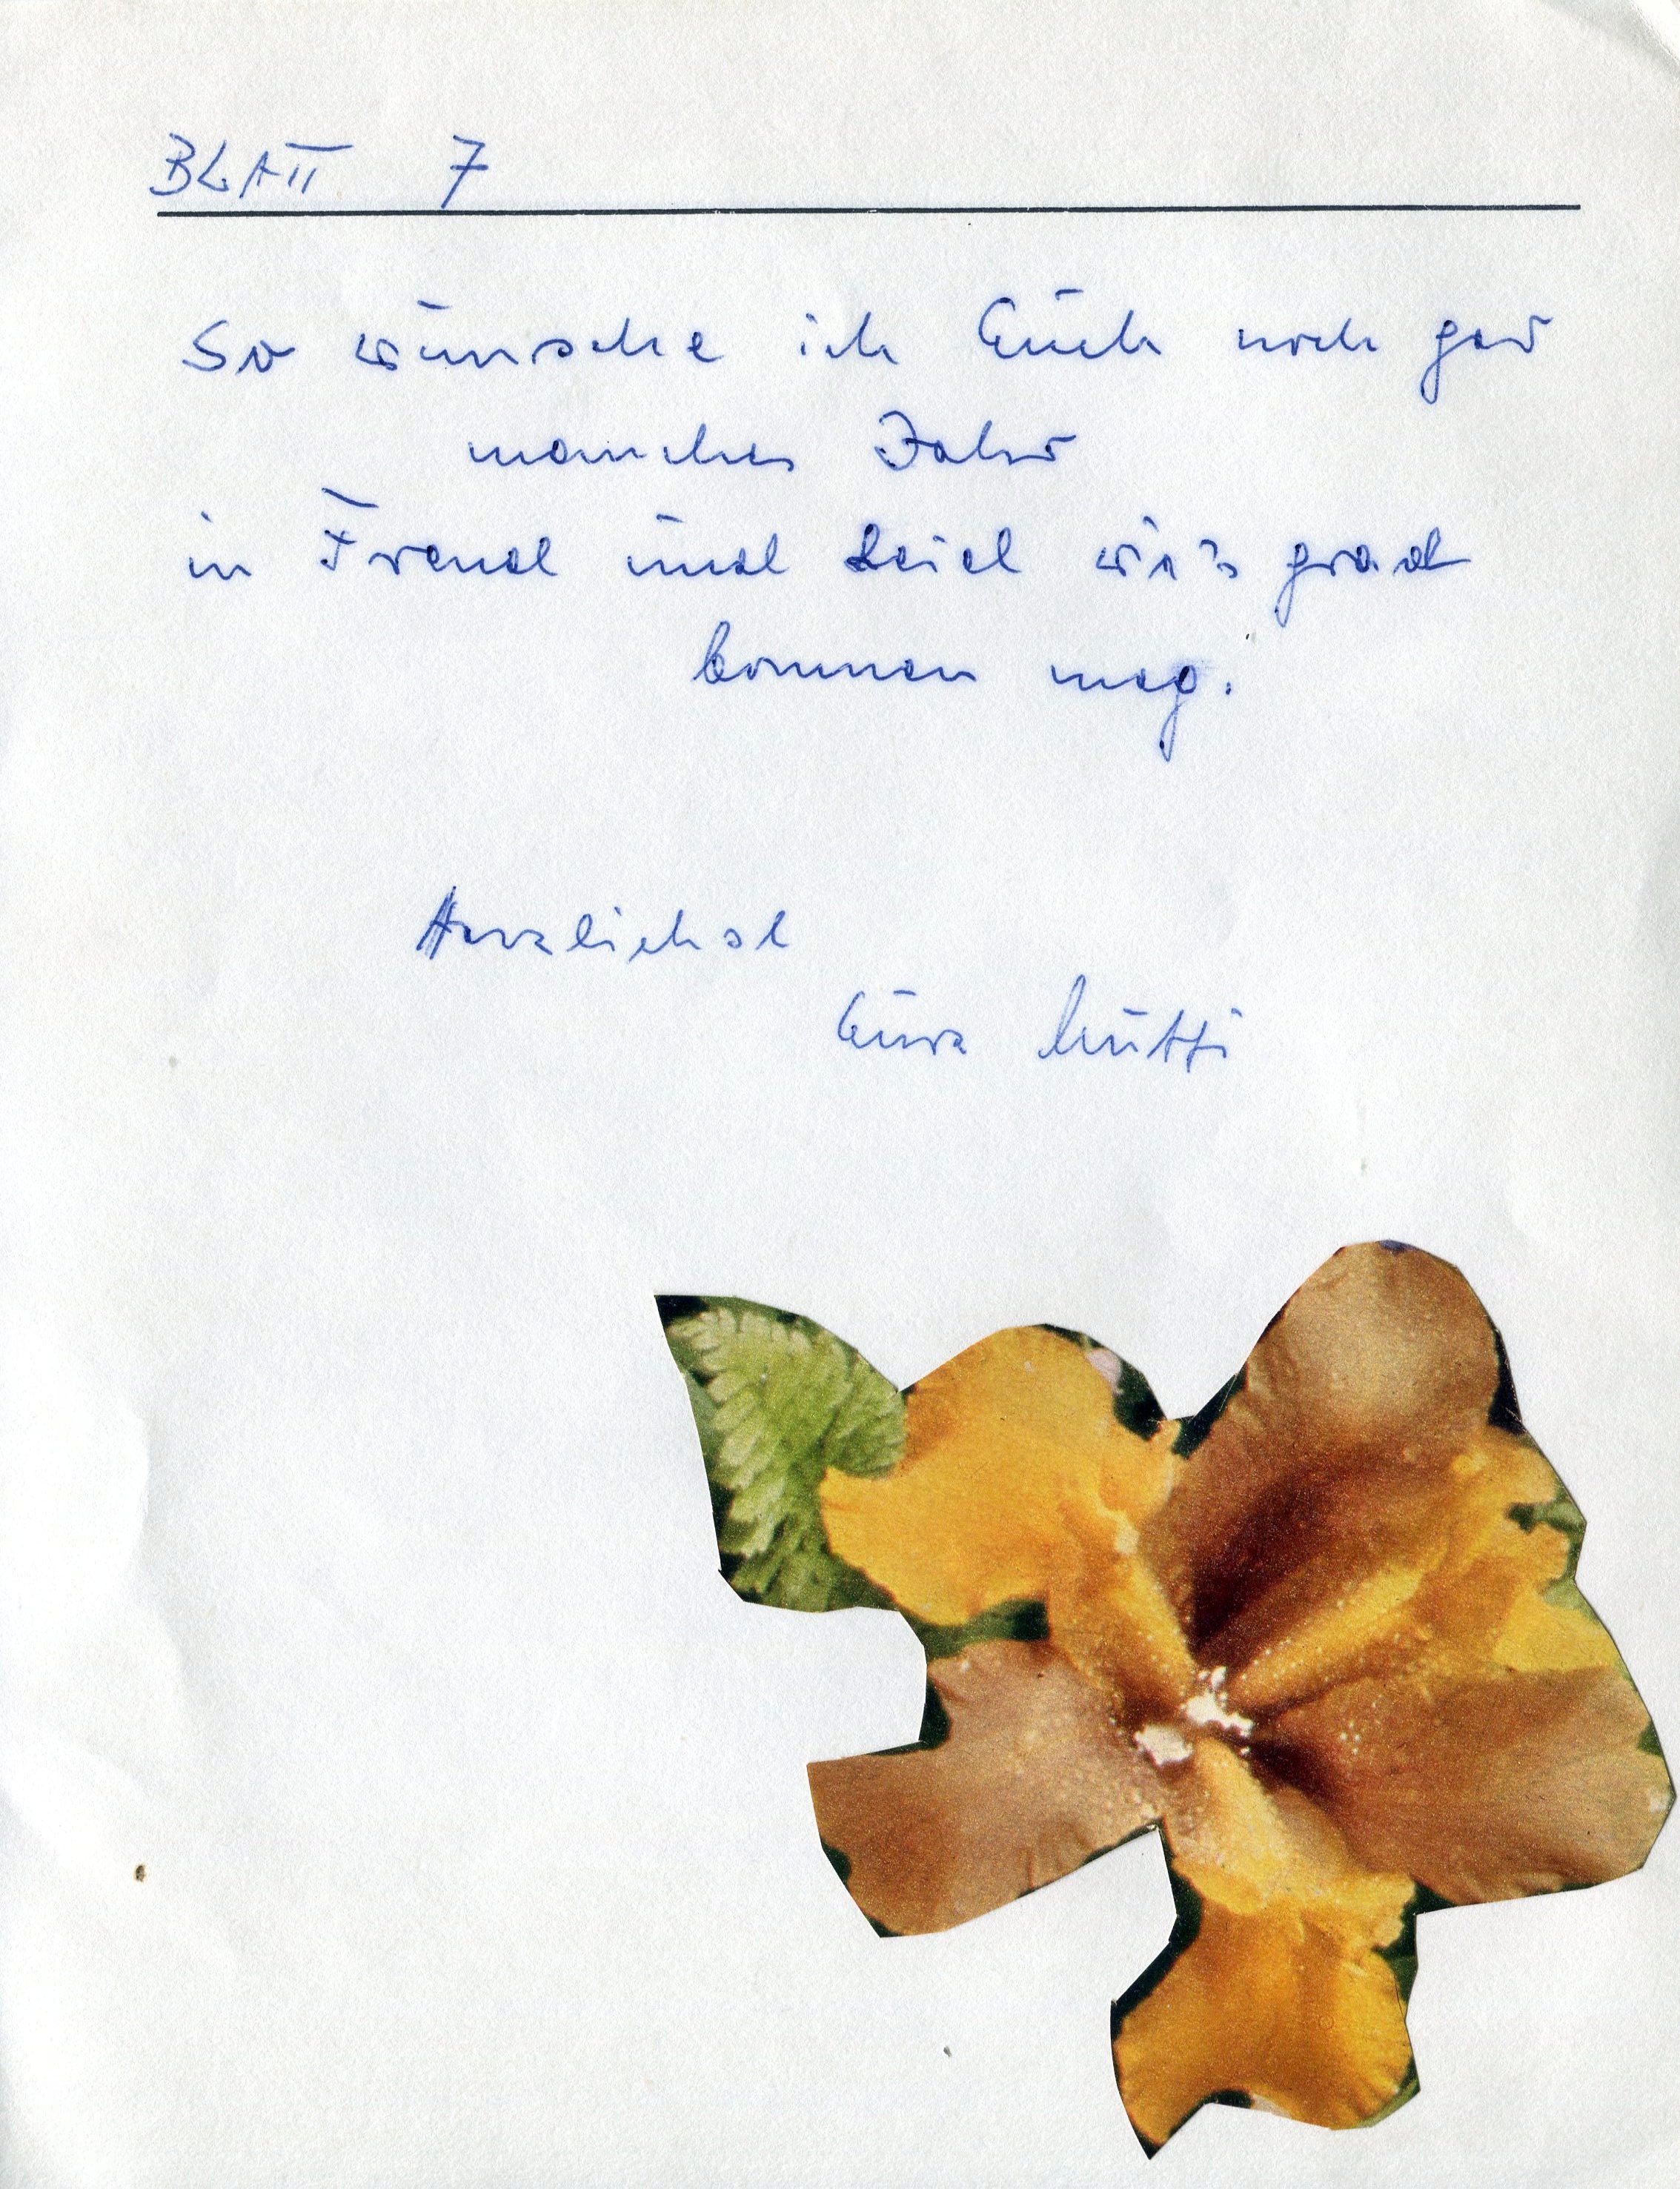 BLATT 7
So wünsche ich Euch noch gar
manches Jahr
in Freud und Leid wie's grad
kommen mag.
Herzlichst
Eure Mutti